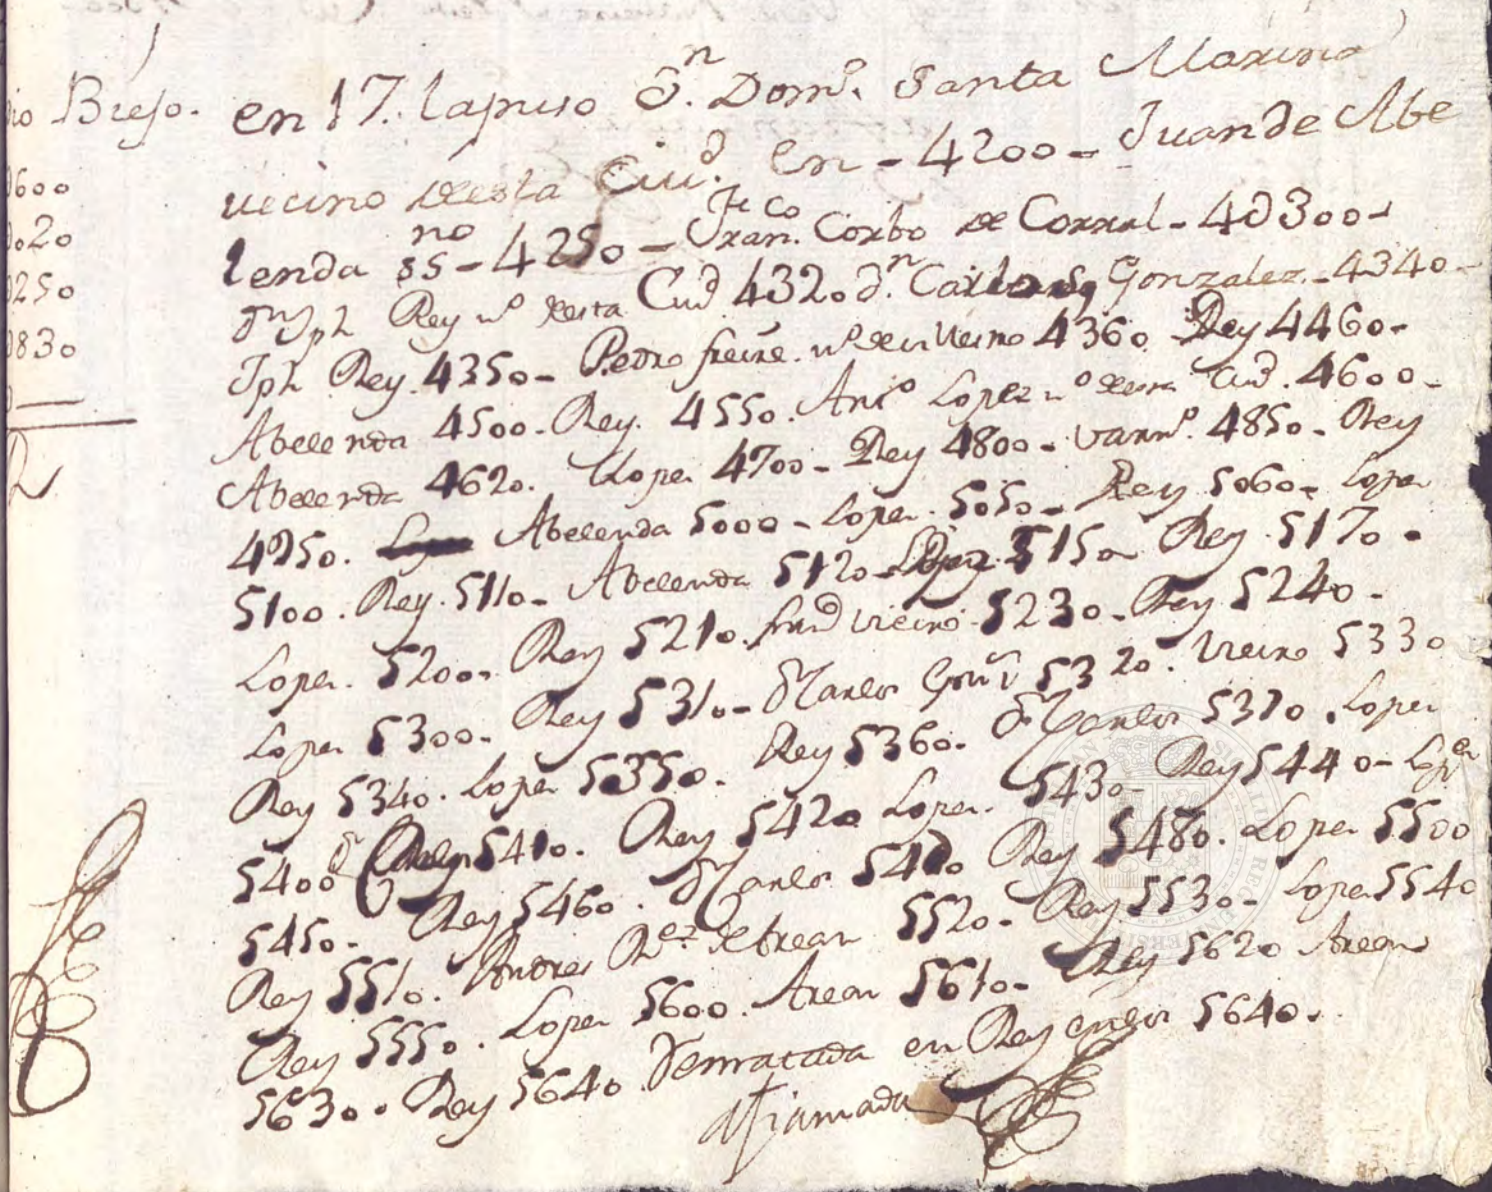 Biejo.
en 17. lapuso Dn. Domo. Santa Marina
vecino desta Ciud. en - 4200 - Juan de Abe
lenda ssno - 4250 - Franco. Corbo de Corral - 4d300 -
Dn Jph Rey vo desta Ciud 4320 dn. Carlos Gonzalez - 4340 -
Jph Rey. 4350 - Pedro freire. vo de 4360 - Rey 4460 -
Abelenda 4500 - Rey. 4550. Anto Lopez vo desta Ciud. 4600 -
Abelenda 4620. Lopez 4700 - Rey 4800 - 4850 - Rey
4950. Abelenda 5000 - Lopez. 5050 - Rey 5060 - Lopez
5100. Rey. 5110 - Abelenda 5120 - Lopez 5150 Rey. 5170 -
Lopez. 5200 - Rey 5210. 5230 - Rey 5240 -
Lopez 5300 - Rey 5310 - Dn Carlos 5320. 5330
Rey 5340. Lopez 5350. Rey 5360. Dn Carlos 5370. Lopez
5400 Dn 5410. Rey 5420 Lopez. 5430 - Rey 5440 - Lopez
5450 - Rey 5460. Dn Carlos 5470 Rey 5480. Lopez 5500
Rey 5510. Andres Rez de Arean 5520 - Rey 5530 - Lopez 5540
Rey 5550. Lopez 5600. Arean 5610 - Rey 5620 Arean
5630. Rey 5640 Rematada en Rey 5640.
Afiamada
600
020
250
830